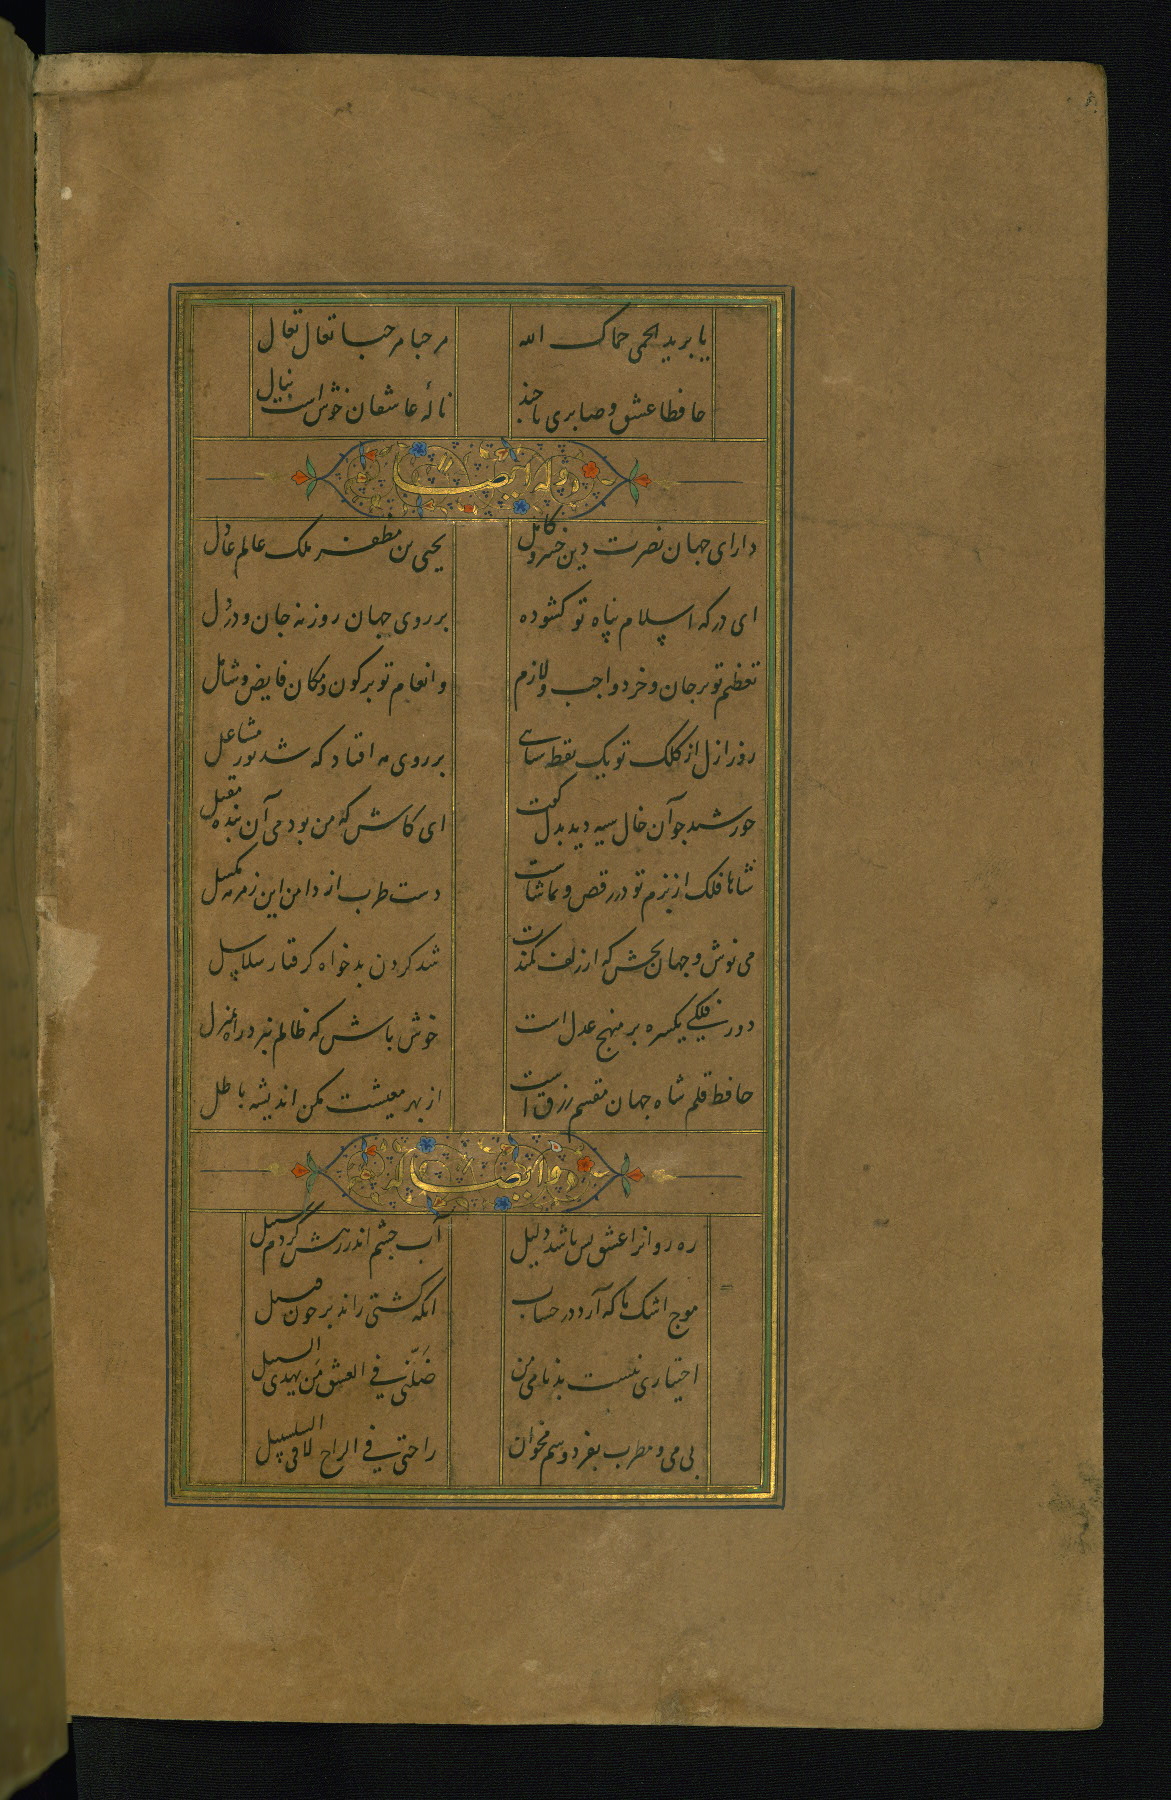 یا برید الحمی حماک الله
مرحبا مرحبا تعال تعال
حافظا عشق و صابری تا چند
نالهٔ عاشقان خوش است بنال
وله ایضا
دارای جهان نصرت دین خسرو کامل
یحیی بن مظفر ملک عالم عادل
ای درکه اسلام پناه تو کشوده
بر روی جهان روزنه جان و در دل
تعظیم تو بر جان و خرد واجب و لازم
وانعام تو بر کون و مکان فایض و شامل
روز ازل از کلک تو یک نقطه سیاهی
بر روی مه افتاد که شد نور مشاعل
خورشید جو آن خال سیه دید بدل کفت
ای کاش که من بودمی آن بنده مقبل
شاها فلک از بزم تو در رقص و تماشاست
دست طرب از دامن این زمزمه مکسل
می نوش و جهان بخش که از زلف کمندت
شد کردن بدخواه کرفتار سلاسل
دور فلکی یکسره بر منهج عدل است
خوش باش که ظالم نبرد راه بمنزل
حافظ قلم شاه جهان مقسم رزق است
از بهر معیشت مکن اندیشه باطل
وله ایضا
ره روانرا عشق بس باشد دلیل
آب چشم اندر رهش کردم سبیل
موج اشک ما که آرد در حساب
انکه کشتی راند بر خون قتیل
اختیاری نیست بدنامی من
ضلّنی فی العشق من یهدی السبیل
بی می و مطرب بفردوسم مخوان
راحتی فی الراح لا فی السلسبیل